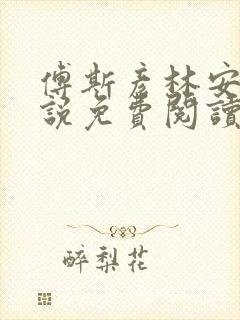 傅斯彦林安
說免費閱讀
醉梨花